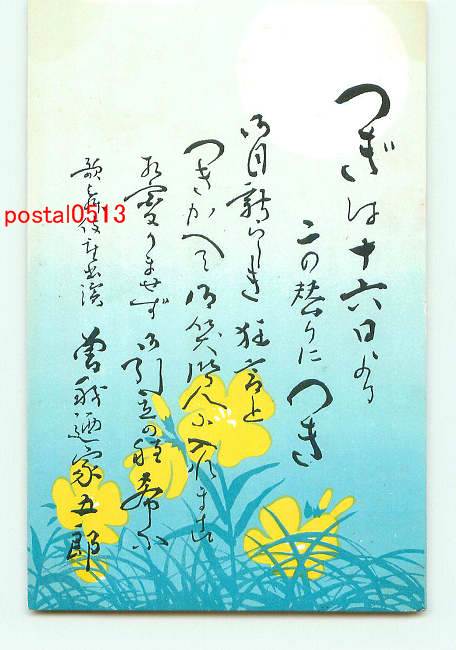 つぎは十六日より
二の替りに つき
御目新らしき狂言と
つきかへて御笑覧に入れます
相変りませず御引立の程希ふ
歌舞伎座出演 曽我廼家五郎
postal0513